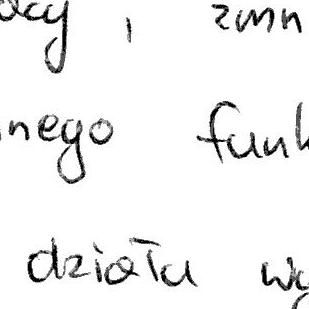 ocy, zmn
nego funk
działu wy